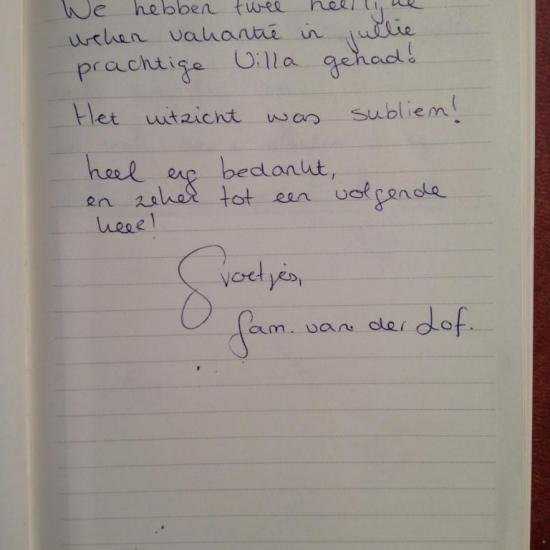 We hebben twee heerlijke
weken vakantie in jullie
prachtige Villa gehad!
Het uitzicht was subliem!
heel erg bedankt,
en zeker tot een volgende
keer!
Groetjes,
fam. van der Lof.